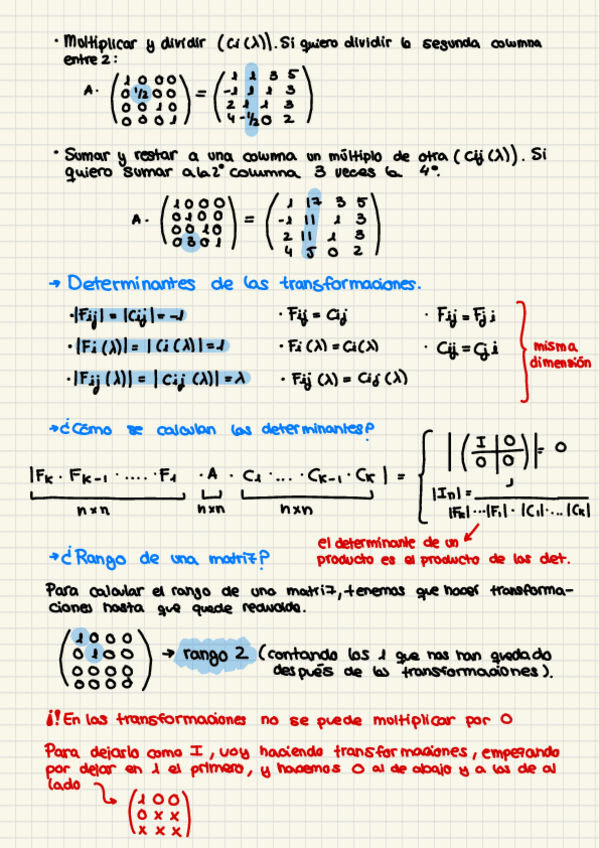 · Multiplicar y dividir (Ci(λ)). Si quiero dividir la segunda columna
entre 2:
A · (1 0 0 0 = (1 1 3 5
0 1/2 0 0 -1 1 1 3
0 0 1 0 2 1 1 3
0 0 0 1) 4 -1/2 0 2)
· Sumar y restar a una columna un múltiplo de otra (Cij(λ)). Si
quiero sumar a la 2ª columna 3 veces la 4ª.
A · (1 0 0 0 = (1 17 3 5
0 1 0 0 -1 11 1 3
0 0 1 0 2 11 1 3
0 3 0 1) 4 5 0 2)
→ Determinantes de las transformaciones.
· |Fij| = |Cij| = -1 · Fij = Cij · Fij = Fji
· |Fi(λ)| = |Ci(λ)| = 1 · Fi(λ) = Ci(λ) · Cij = Cji
misma
dimensión
· |Fij(λ)| = |Cij(λ)| = λ · Fij(λ) = Cij(λ)
→ ¿Cómo se calculan los determinantes?
|(I 0
0 0)| = 0
|Fk · Fk-1 · .... · F1 · A · C1 · ... · Ck-1 · Ck| =
|In| = 1
|Fk| ... |F1| · |C1| · ... |Ck|
nxn nxn nxn
el determinante de un
producto es el producto de los det.
→ ¿Rango de una matriz?
Para calcular el rango de una matriz, tenemos que hacer transforma-
ciones hasta que quede reducida.
(1 0 0 0
0 1 0 0
0 0 0 0
0 0 0 0)
→ rango 2 (contando los 1 que nos han quedado
después de las transformaciones).
¡! En las transformaciones no se puede multiplicar por 0
Para dejarlo como I, voy haciendo transformaciones, empezando
por dejar en 1 el primero, y hacemos 0 al de abajo y a los de al
lado
(1 0 0
0 x x
x x x)